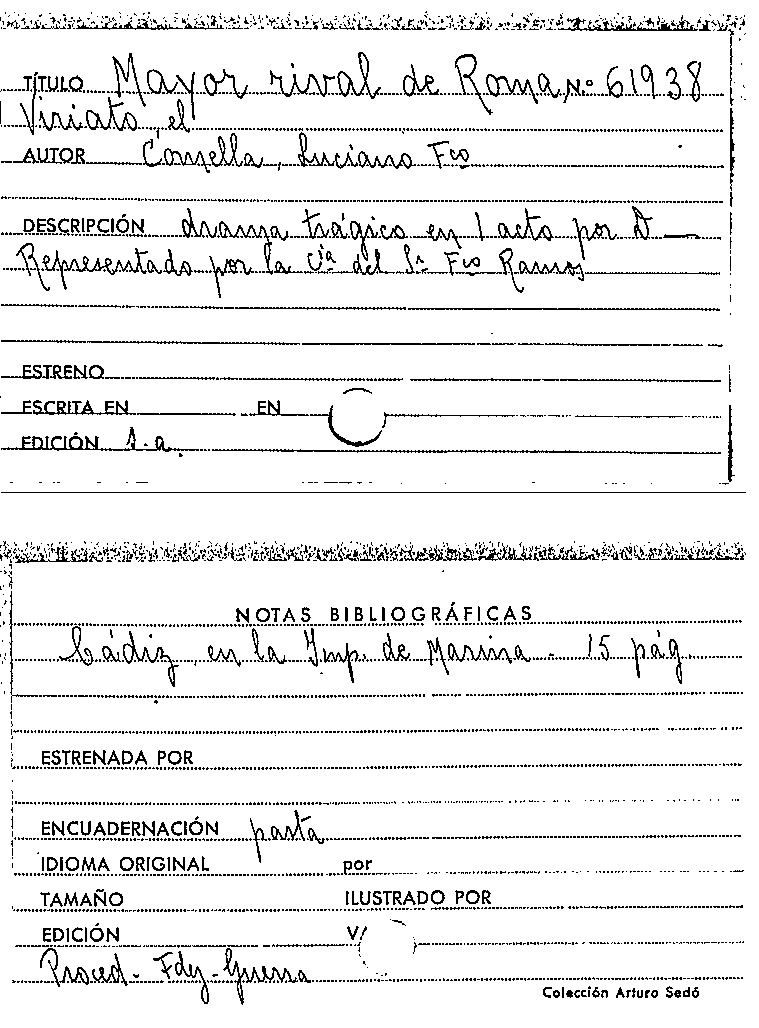 TÍTULO Mayor rival de Roma, N.º 61938
Viriato, el
AUTOR Comella, Luciano Fco
DESCRIPCIÓN drama trágico en 1 acto por D —
Representado por la Cía del Sr Fco Ramos
ESTRENO
ESCRITA EN EN
EDICIÓN S.a.
NOTAS BIBLIOGRÁFICAS
Cádiz, en la Imp. de Marina - 15 pág.
ESTRENADA POR
ENCUADERNACIÓN pasta
IDIOMA ORIGINAL por
TAMAÑO ILUSTRADO POR
EDICIÓN V/
Proced - Fdez - Guerra
Colección Arturo Sedó